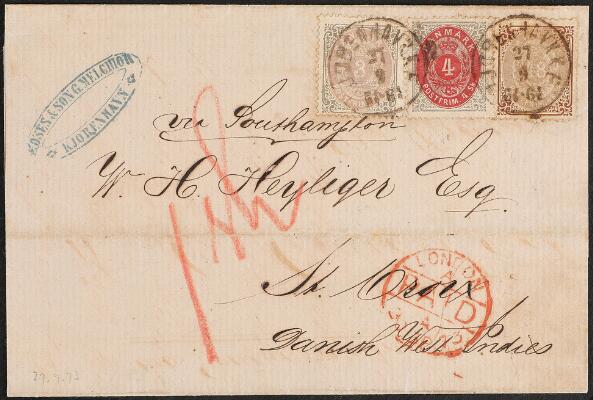 MOSES & SØN G. MELCHIOR
KJØBENHAVN
KJØBENHAVN K.E.
27
9
DANMARK
4
POSTFRIM. 4 SK
27
9
8
via Southampton
W. H. Heyliger Esq.
St. Croix
Danish West Indies
LONDON
PAID
29.9.73